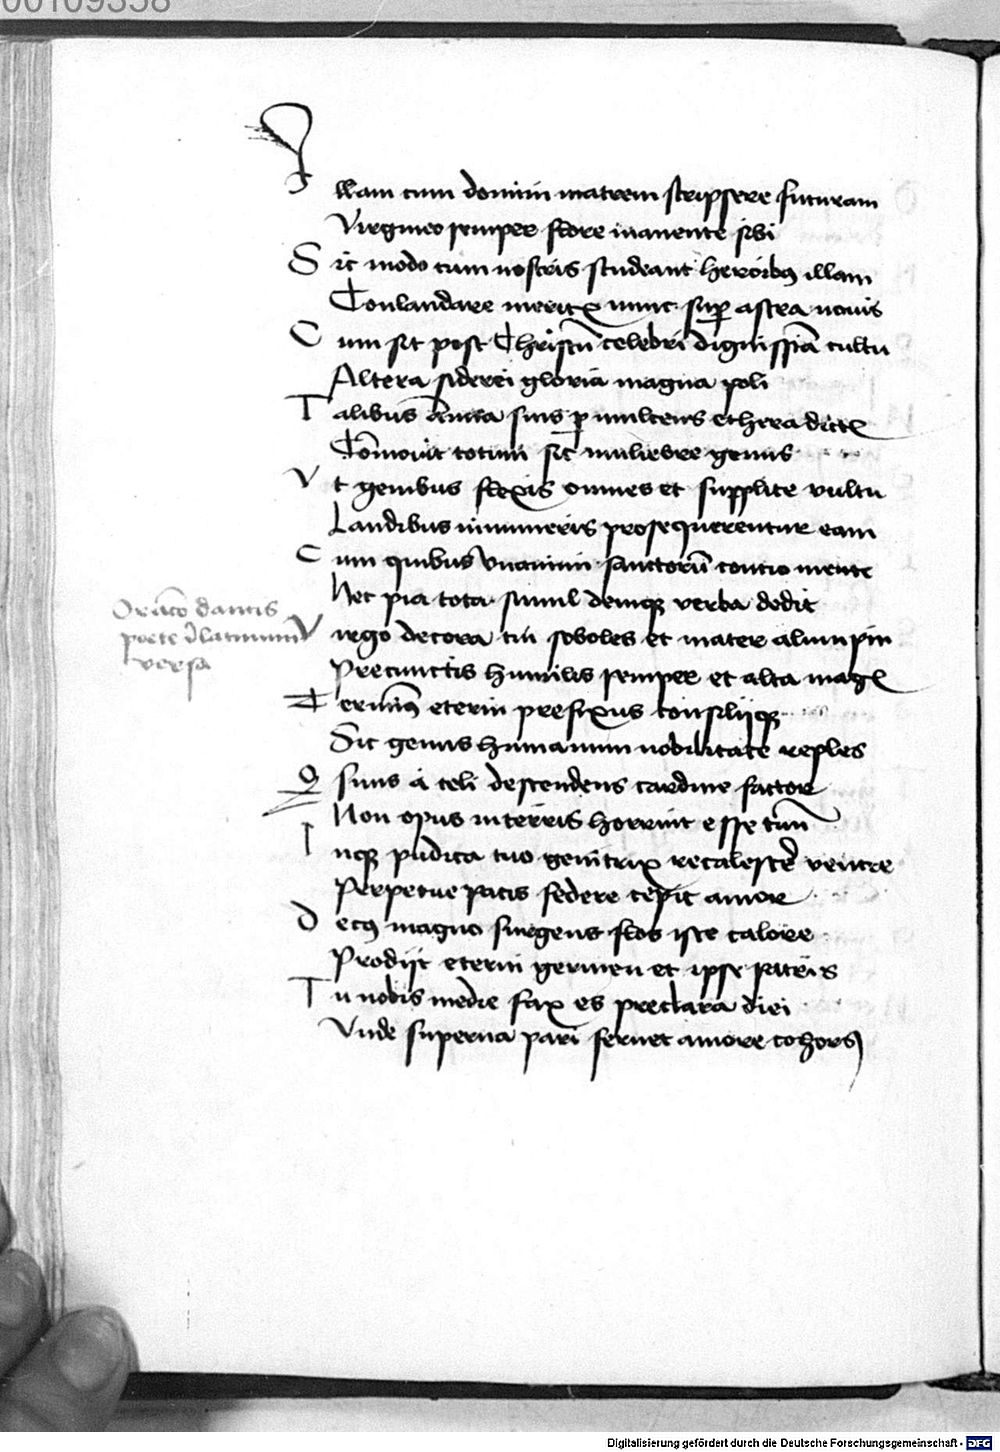 00109358
Illam cum domini matrem scripsere futuram
Virgineo semper flore manente sibi
Sic modo cum nostris studeant heroibꝰ illam
Conlaudare meritꝭ nunc suꝑ astra nouis
Cum sit post Christū celebri dignissīa cultu
Altera siderei gloria magna poli
Talibus suis ꝑ mulcens ethera dictꝭ
Cōmouit totum sic muliebre genus
Vt genibus flexis omnes et supplice vultu
Laudibus innumeris prosequerentur eam
Cum quibus vnanimi sanctorū concio mente
Hec pia tota simul deniqꝫ verba dedit
Oratō dantis
poete ī latinum
versa
Virgo decora tui soboles et mater alumpni
Precunctis humilis semper et alta magꝭ
Terminꝰ eterni prefixus consiliiqꝫ
Sic genus humanum nobilitate reples
Qͦ suus a celi descendens cardine factor
Non opus interris horruit esse tuū
Inqꝫ pudica tuo genitrix recalescē ventre
Perpetue pacis federe cepit amor
Decꝰ magno surgens flos iste calore
Prodijt eterni germen et ipse patris
Tu nobis medie fax es preclara diei
Vnde superna pari feruet amore cohors
Digitalisierung gefördert durch die Deutsche Forschungsgemeinschaft - DFG